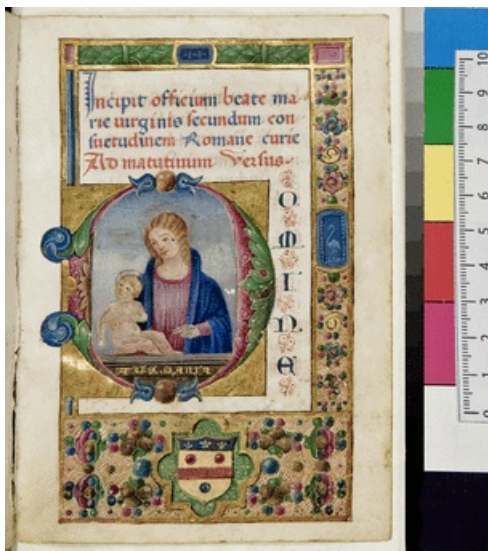 Incipit officium beate ma
rie virginis secundum con
suetudinem Romane curie
Ad matutinum Versus.
D
O
M
I
N
E
10
9
8
7
6
5
4
3
2
1
0